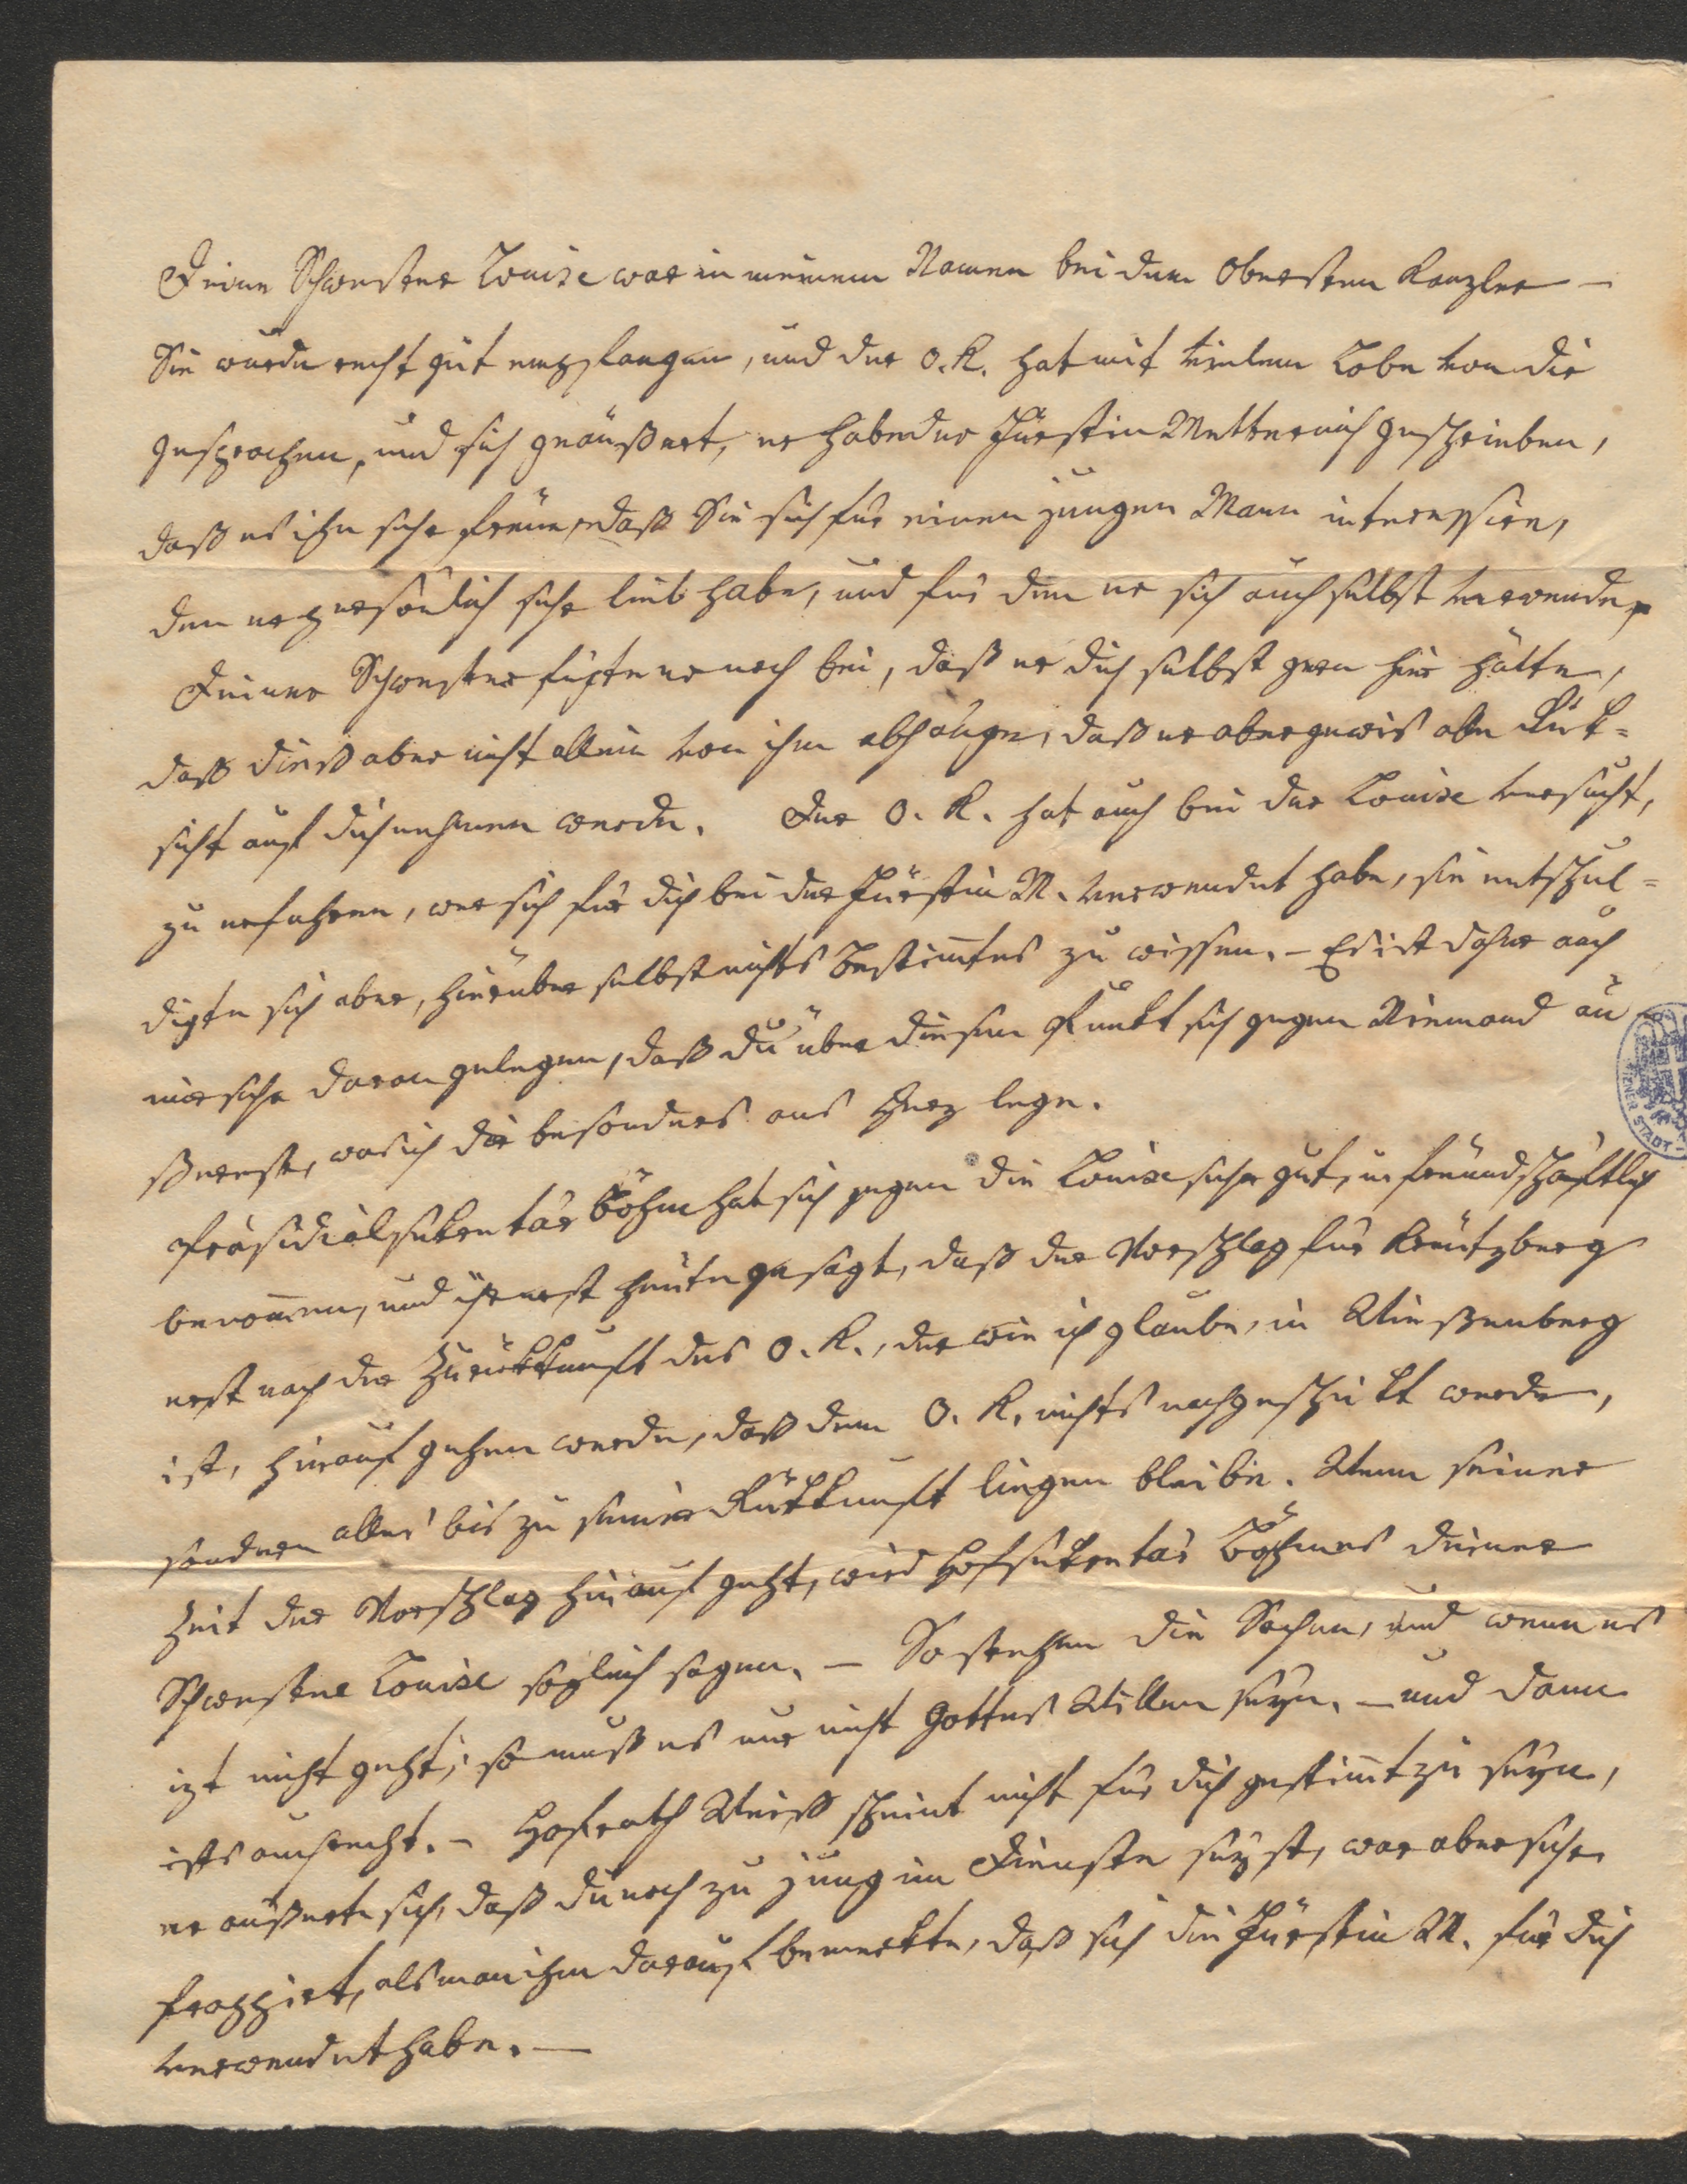 Deine Schwester Louise war in meinem Namen bei dem Obersten Kanzler –
Sie wurde recht gut empfangen, und der O. K. hat mit vielem Lobe von dir
gesprochen, und sich geäußert, er habe der Fürstin Metternich geschrieben,
daß es ihn sehr freue, daß Sie sich für einen jungen Mann interessire,
den er persönlich sehr lieb habe, und für den er sich auch selbst verwende,
Deiner Schwester fügte er noch bei, daß er dich selbst gern hier hätte,
daß dieß aber nicht allein von ihm abhänge, daß er aber gewis alle Rük=
sicht auf dich nehmen werde. Der O. K. hat auch bei der Louise versucht,
zu erfahren, wer sich für dich bei der Fürstin M. verwendet habe, sie entschul=
digte sich aber, hierüber selbst nichts Bestim̄tes zu wissen. – Es ist daher auch
mir sehr daran gelegen, daß du über diesen Punkt sich gegen Niemand äu
ßerest, was ich dir besonders ans Herz lege.
Präsidialsekretär Böhm hat sich gegen die Louise sehr gut, u. freundschaftlich
benom̄en, und ihr erst heute gesagt, daß der Vorschlag für Kreutzberg
erst nach der Zurückkunft des O. K., der wie ich glaube, in Wießenberg
ist, hinauf gehen werde, daß dem O. K. nichts nachgeschikt werde,
sondern alles bis zu seiner Rükkunft liegen bleibe. Wenn seiner
Zeit der Vorschlag hinauf geht, wird Hofsekretär Böhmes deiner
Schwester Louise sogleich sagen. – So stehen die Sachen, und wenn es
izt nicht geht, so muß es nur nicht Gottes Willen seyn, – und dann
ists auch recht. – Hofrath Weiß scheint nicht für dich gestim̄t zu seyn,
er äußerte sich, daß du noch zu jung im Dienste seyst, war aber sehr
frappirt, als man ihm darauf bemerkte, daß sich die Fürstin M. für dich
verwendet habe. –
STADT